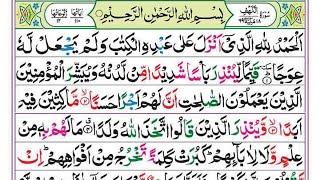 بِسْمِ اللّٰهِ الرَّحْمٰنِ الرَّحِيْمِ
اَلْحَمْدُ لِلّٰهِ الَّذِيْۤ اَنْزَلَ عَلٰى عَبْدِهِ الْكِتٰبَ وَلَمْ يَجْعَلْ لَّهٗ
عِوَجًا ① قَيِّمًا لِّيُنْذِرَ بَاْسًا شَدِيْدًا مِّنْ لَّدُنْهُ وَيُبَشِّرَ الْمُؤْمِنِيْنَ
الَّذِيْنَ يَعْمَلُوْنَ الصّٰلِحٰتِ اَنَّ لَهُمْ اَجْرًا حَسَنًا ② مَّاكِثِيْنَ فِيْهِ
اَبَدًا ③ وَّيُنْذِرَ الَّذِيْنَ قَالُوا اتَّخَذَ اللّٰهُ وَلَدًا ④ مَا لَهُمْ بِهٖ مِنْ
عِلْمٍ وَّلَا لِاٰبَآئِهِمْ كَبُرَتْ كَلِمَةً تَخْرُجُ مِنْ اَفْوَاهِهِمْ اِنْ